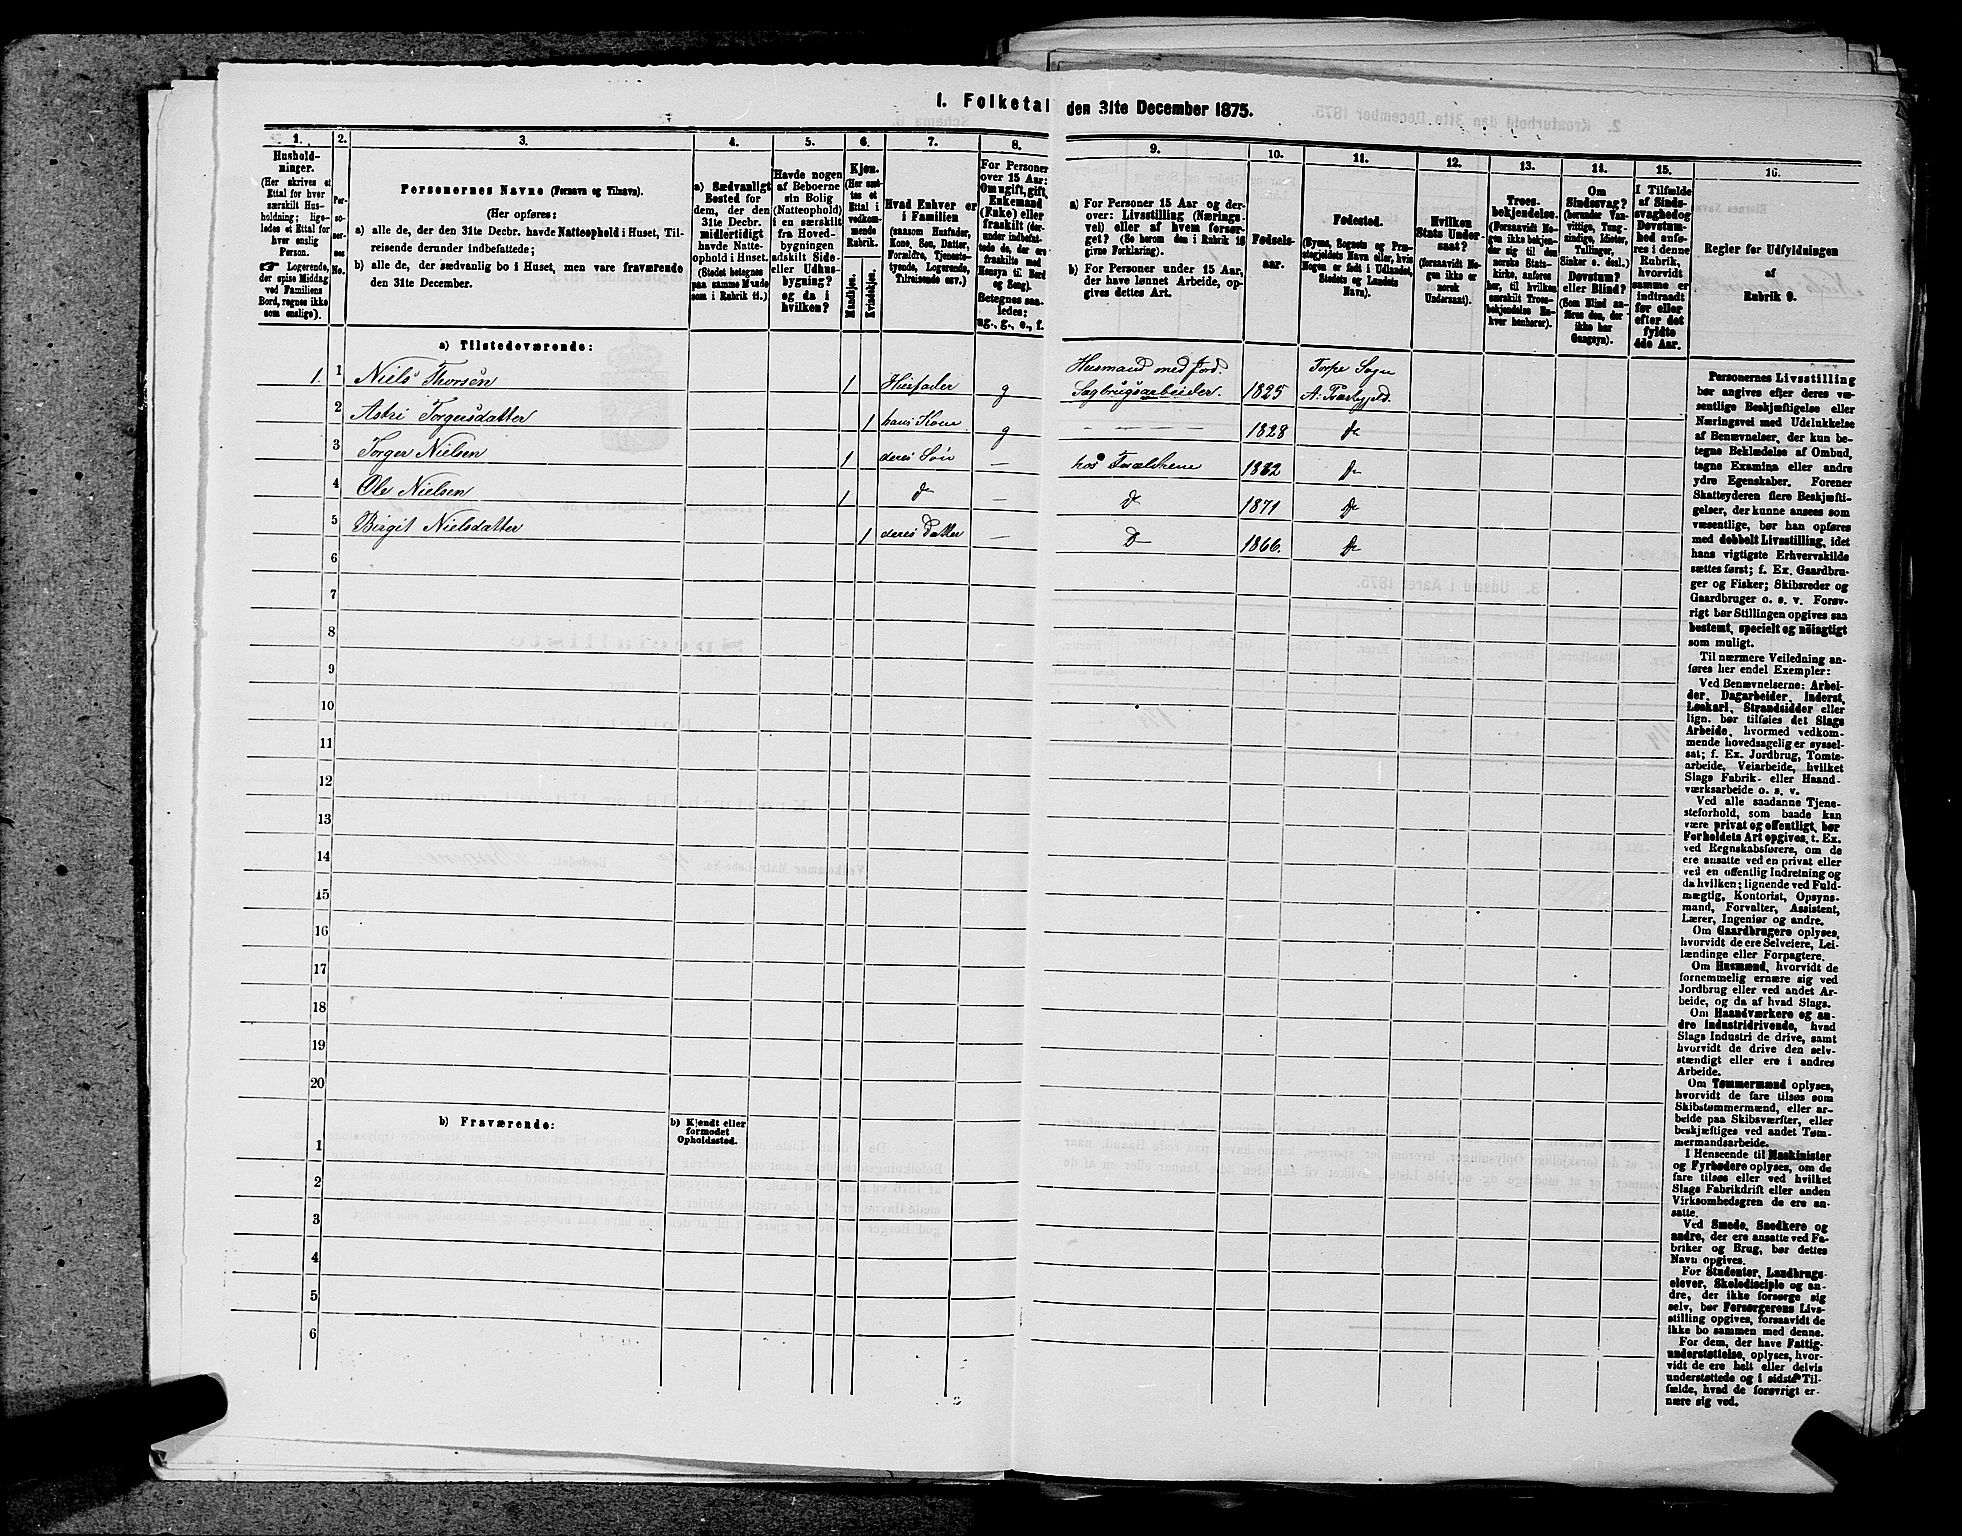 1. Folketal den 31te December 1875.
1. 2. 3. 4. 5. 6. 7. 8. 9. 10. 11. 12. 13. 14. 15. 16.
Hushold-
ninger.
(Her skrives et
Ettal for hver
særskilt Hus-
holdning; lige-
ledes et Ettal for
hver enslig
Person.
☞ Logerende,
der spise Middag
ved Familiens
Bord, regnes ikke
som enslige).
Per-
so-
ner-
nes
No.
Personernes Navne (Fornavn og Tilnavn).
(Her opføres:
a) alle de, der den 31te Decbr. havde Natteophold i Huset, Til-
reisende derunder indbefattede;
b) alle de, der sædvanlig bo i Huset, men vare fraværende
den 31te December.
a) Sædvanligt
Bosted for
dem, der den
31te Decbr.
midlertidigt
havde Natte-
ophold i Huset.
(Stedet betegnes
paa samme Maade
som i Rubrik 11.)
Havde nogen
af Beboerne
sin Bolig
(Natteophold)
i en særskilt
fra Hoved-
bygningen
adskilt Side-
eller Udhus-
bygning?
og da i
hvilken?
Kjøn.
(Her sæt-
tes et
Ettal i
vedkom-
mende
Rubrik.
Mandkjøn.
Kvindekjøn.
Hvad Enhver er
i Familien
(saasom Husfader,
Kone, Søn, Datter,
Forældre, Tjeneste-
tyende, Logerende,
Tilreisende osv.)
For Personer
over 15 Aar:
Om ugift, gift,
Enkemand
(Enke) eller
fraskilt (der-
under indbefat-
tede de, der ere
fraskilte med
Hensyn til Bord
og Seng).
Betegnes saa-
ledes:
ug., g., e., f.
a) For Personer 15 Aar og der-
over: Livsstilling (Nærings-
vei) eller af hvem forsør-
get? (Se herom den i Rubrik 16
givne Forklaring).
b) For Personer under 15 Aar,
der have lønnet Arbeide, op-
gives dettes Art.
Fødsels-
aar.
Fødested.
(Byens, Sognets og Præ-
stegjeldets Navn eller, hvis
Nogen er født i Udlandet,
Stedets og Landets
Navn).
Hvilken
Stats Under-
saat?
(forsaavidt No-
gen ikke er
norsk
Undersaat).
Troes-
bekjendelse.
(Forsaavidt No-
gen ikke bekjen-
der sig til den
norske Stats-
kirke, anføres
her, til hvilken
særskilt Troes-
bekjendelse En-
hver henhører).
Om
Sindssvag?
(herunder Van-
vittige, Tung-
sindige, Idioter,
Tullinger,
Sinker o. desl.)
Døvstum?
eller Blind?
(Som Blind an-
føres den, der
ikke har
Gangsyn).
I Tilfælde
af Sinds-
svaghed og
Døvstum-
hed anfø-
res i denne
Rubrik,
hvorvidt
samme er
indtraadt
før eller
efter det
fyldte
4de Aar.
Regler for Udfyldningen
af
Rubrik 9.
a) Tilstedeværende:
1. 1 Niels Thorsen 1 Husfader g Husmand med Jord. Sagbrugsarbeider. 1825 Torpe Sogn A: Præstgjeld.
2 Astri Torgersdatter 1 hans Kone g — — — — 1828 do
3 Torger Nielsen 1 deres Søn — hos Forældrene 1862 do
4 Ole Nielsen 1 do — do 1871 do
5 Birgit Nielsdatter 1 deres Datter — do 1866. do
6
7
8
9
10
11
12
13
14
15
16
17
18
19
20
b) Fraværende:
b) Kjendt eller
formodet
Opholdssted.
1
2
3
4
5
6
Personernes Livsstilling
bør angives efter deres væ-
sentlige Beskjæftigelse eller
Næringsvei med Udelukkelse
af Benævnelser, der kun be-
tegne Beklædelse af Ombud,
tagne Examina eller andre
ydre Egenskaber. Forener
Skatteyderen flere Beskjæfti-
gelser, der kunne ansees som
væsentlige, bør han opføres
med dobbelt Livsstilling, idet
hans vigtigste Erhvervskilde
sættes først; f. Ex. Gaardbru-
ger og Fisker; Skibsreder og
Gaardbruger o. s. v. Forøv-
rigt bør Stillingen opgives saa
bestemt, specielt og nöiagtigt
som muligt.
Til nærmere Veiledning an-
føres her endel Exempler:
Ved Benævnelserne: Arbei-
der, Dagarbeider, Inderst,
Løskarl, Strandsidder eller
lign. bør tilføies det Slags
Arbeide, hvormed vedkom-
mende hovedsagelig er syssel-
sat; f. Ex. Jordbrug, Tomte-
arbeide, Veiarbeide, hvilket
Slags Fabrik- eller Haand-
værksarbeide o. s. v.
Ved alle saadanne Tjene-
steforhold, som baade kan
være privat og offentligt, bør
Forholdets Art opgives, t. Ex.
ved Regnskabsførere, om de
ere ansatte ved en privat eller
ved en offentlig Indretning og
da hvilken; lignende ved Fuld-
mægtig, Kontorist, Opsyns-
mand, Forvalter, Assistent,
Lærer, Ingeniør og andre.
Om Gaardbrugere oplyses,
hvorvidt de ere Selveiere, Lei-
lændinge eller Forpagtere.
Om Husmænd, hvorvidt de
fornemmelig ernære sig ved
Jordbrug eller ved andet Ar-
beide, og da af hvad Slags.
Om Haandværkere og an-
dre Industridrivende, hvad
Slags Industri de drive, samt
hvorvidt de drive den selv-
stændigt eller ere i andres
Arbeide.
Om Tømmermænd oplyses,
hvorvidt de fare tilsøs som
Skibstømmermænd, eller ar-
beide paa Skibsværfter, eller
beskjæftiges ved andet Tøm-
mermandsarbeide.
I Henseende til Maskinister
og Fyrbødere oplyses, om de
fare tilsøs eller ved hvilket
Slags Fabrikdrift eller anden
Virksomhedsgren de ere an-
satte.
Ved Smede, Snedkere og
andre, der ere ansatte ved Fa-
briker og Brug, bør dettes
Navn opgives.
For Studenter, Landbrugs-
elever, Skoledisciple og an-
dre, der ikke forsørge sig
selv, bør Forsørgerens Livs-
stilling opgives, forsaavidt de
ikke bo sammen med denne.
For dem, der have Fattig-
understøttelse, oplyses, hvor-
vidt de ere helt eller delvis
understøttede og i sidste Til-
fælde, hvad de forøvrigt er-
nære sig ved.